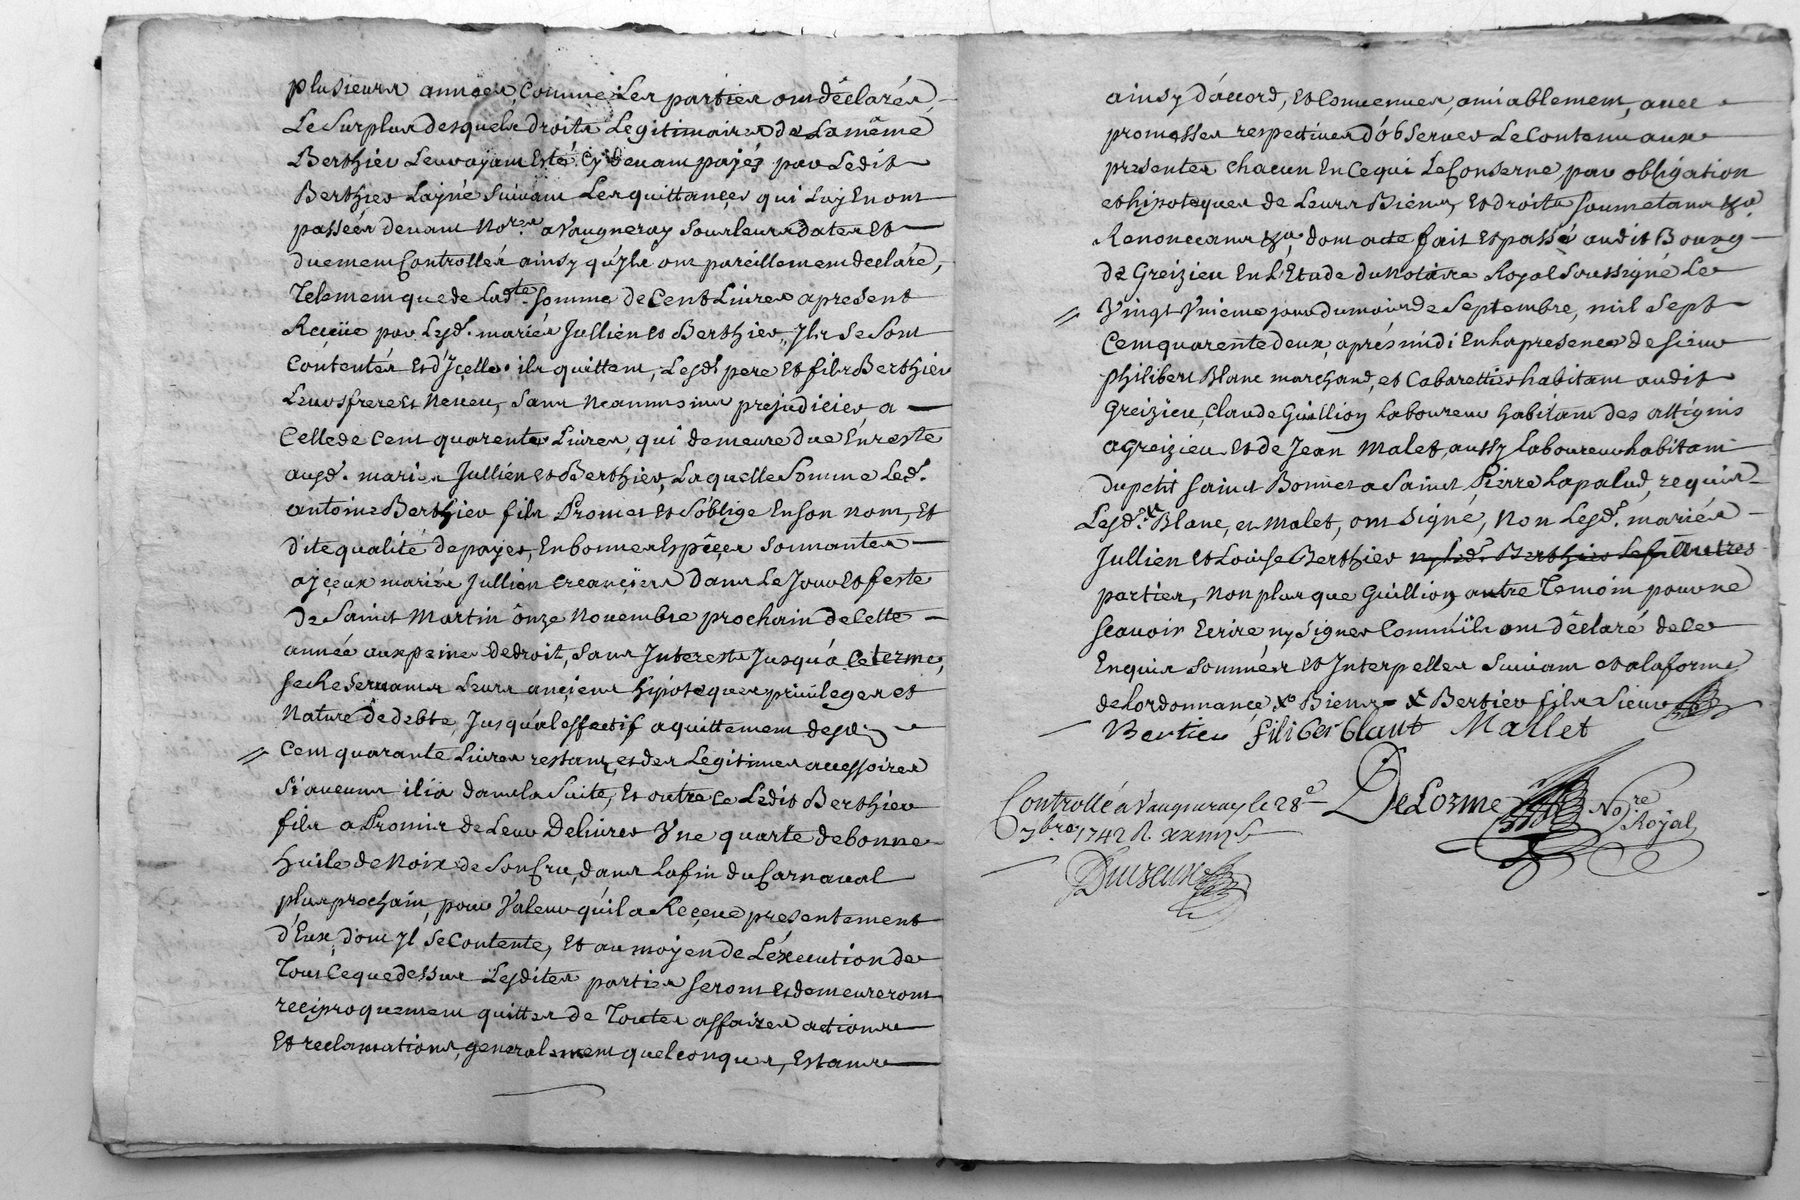 plusieurs années, comme Les parties ont déclarés,
Le Surplus desquels droits Legitimaires de La même
Berthier Leur ayant Esté cy devant payés par Ledit
Berthier L'ayné suivant Les quittances qui Luy En ont
passées devant No.res a Vaugneray sous leurs dates Et
duement Controllés ainsy qu'yls ont pareillement declaré,
Telement que de lad.te somme de Cent Livres a present
Reçüe par Lesd. mariés Jullien et Berthier, Yls se sont
Contentés et d'Jcelle ils quittent, Lesd.s pere Et fils Berthier
Leurs frere et Neveu, sans Neanmoins prejudicier a
Celle de Cent quarente Livres, qui demeure due En reste
ausd. mariés Jullien et Berthier, Laquelle Somme Led.
antoine Berthier fils Promet et s'oblige En son nom, Et
d'ite qualité de payer, En bonnes Espêçes sonnantes
a jçeux mariés Jullien creançiers dans Le Jour Et feste
de Saint Martin ônze Novembre prochain de Cette
année aux peines de droit, sans Interests Jusqu'a Ce terme,
se Reservants Leurs ançiens hipoteques privileges et
Nature de debte, Jusqu'al'effectif aquittement desd.
Cent quarante Livres restanz, et des Legitimes accessoires
si aucuns il i a dans la suite, Et outre ce Ledit Berthier
fils a Promis de Leur Delivrer Vne quarte de bonne
huile de Noix de son Cru, dans La fin du Carnaval
plus prochain, pour Valeur qu'il a Reçeue presentement
d'Eux, dont Jl se Contente, Et au moyen de L'éxecution de
Tout Ce que dessus Lesdites parties seront et demeureront
reciproquement quittes de Toutes affaires actions
Et reclamations, generalement quelconques, Estants
ainsy d'accord, et Convenues, amiablement, avec
promesses respectives d'observer Le Contenu aux
presentes chacun En Ce qui Le Conserne, par obligation
et hipoteques de Leurs Biens, Et droits soumetans &a.
Renonceans &a, dont acte fait Et passé audit Bourg
de Greizieu En L'Etude du Notaire Royal Soussigné Le
Vingt Vnieme jour du mois de Septembre, mil sept
Cent quarente deux, aprés midi En la presence de sieur
philibert Blanc marchand, et Cabarettier habitant audit
Greizieu, Claude Guillion Laboureur habitant des attignis
a Greizieu et de Jean Malet, aussy laboureur habitant
du petit saint Bonnet a Saint Pierre Lapalud, requis
Lesd.s Blanc, et Malet, ont signé, Non Lesd. mariés
Jullien et Louise Berthier ny led. Berthier Le fils Autres
parties, non plus que Guillion autre Temoin pour ne
scavoir Ecrire ny signer Comm'ils ont déclaré de Ce
Enquis sommés et Interpellés suivant et a la forme
de L'ordonnance, X Biens = X Bertier fils sieur
Bertier filiber blant Mallet
Controllé a Vaugneray le 28e
7bre 1742 R.
DeLorme No.re Royal